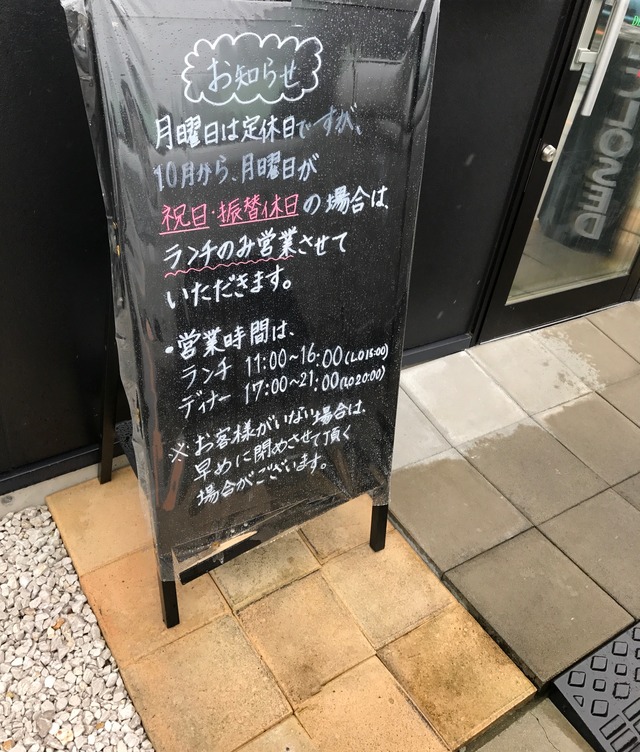 お知らせ
月曜日は定休日ですが、
10月から、月曜日が
祝日・振替休日の場合は、
ランチのみ営業させて
いただきます。
・営業時間は、
ランチ 11:00~16:00(L.O 15:00)
ディナー 17:00~21:00(L.O 20:00)
※お客様がいない場合は、
早めに閉めさせて頂く
場合がございます。